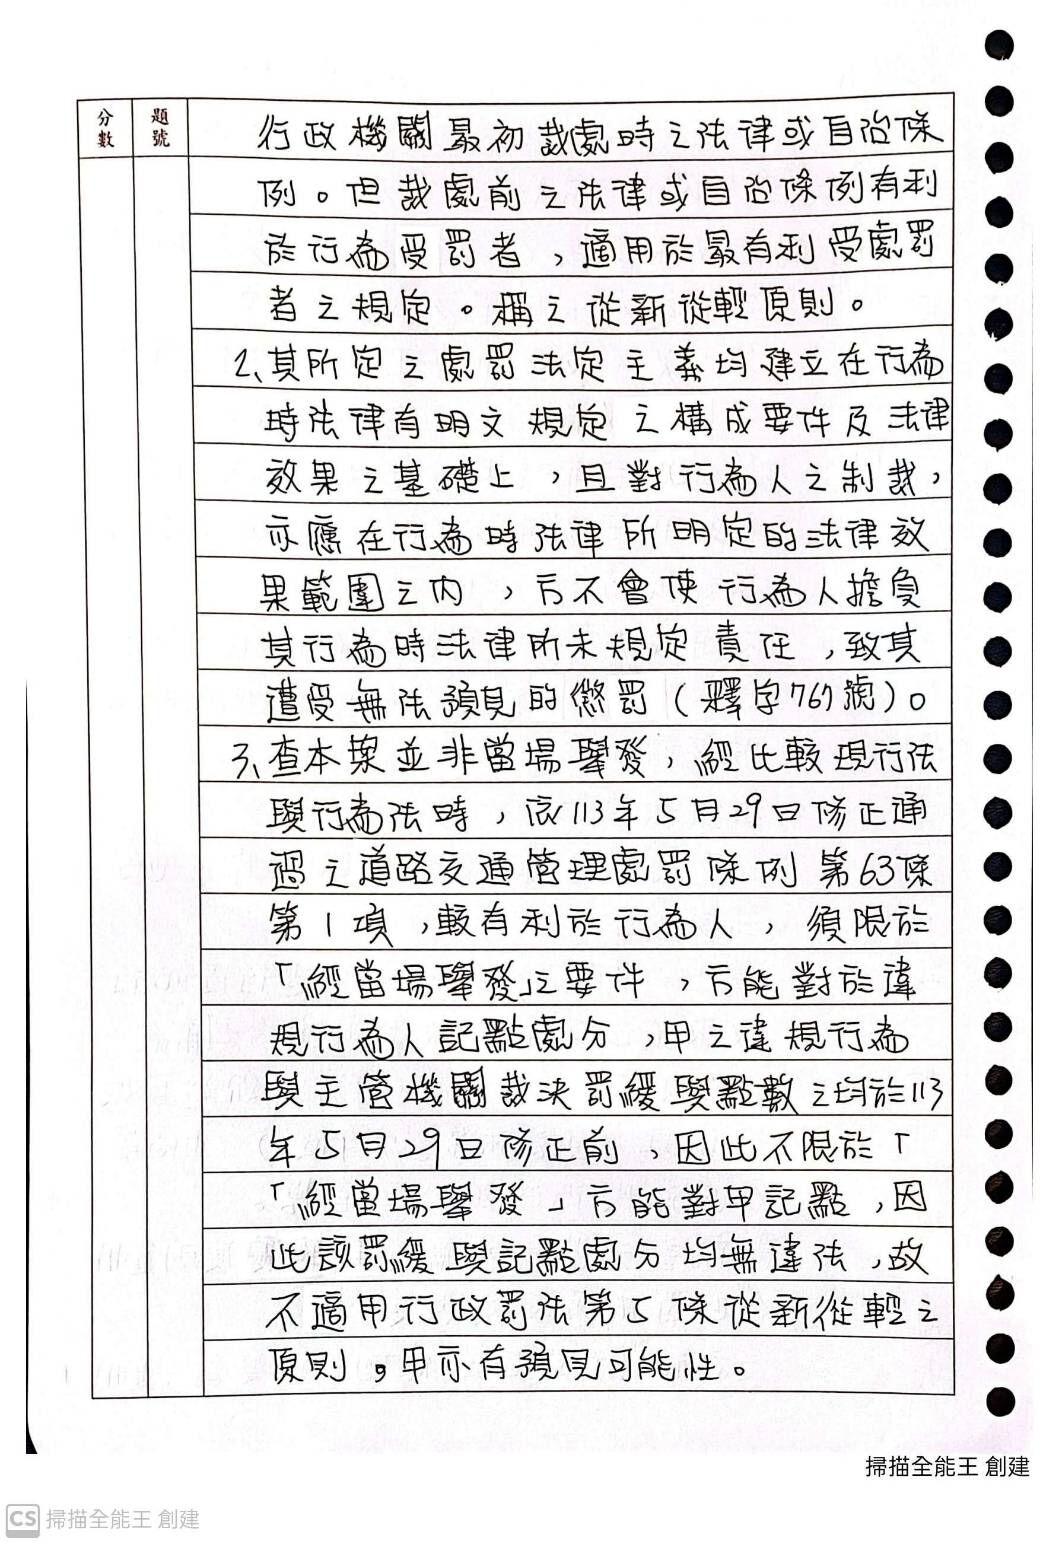 分數
題號
行政機關最初裁處時之法律或自治條
例。但裁處前之法律或自治條例有利
於行為受罰者，適用於最有利受處罰
者之規定。稱之從新從輕原則。
2、其所定之處罰法定主義均建立在行為
時法律有明文規定之構成要件及法律
效果之基礎上，且對行為人之制裁，
亦應在行為時法律所明定的法律效
果範圍之內，方不會使行為人擔負
其行為時法律所未規定責任，致其
遭受無法預見的懲罰（釋字767號）。
3、查本案並非當場舉發，經比較現行法
與行為法時，依113年5月29日修正通
過之道路交通管理處罰條例第63條
第1項，較有利於行為人，須限於
「經當場舉發」之要件，方能對於違
規行為人記點處分，甲之違規行為
與主管機關裁決罰緩與點數之均於113
年5月29日修正前，因此不限於「
「經當場舉發」方能對甲記點，因
此該罰緩與記點處分均無違法，故
不適用行政罰法第5條從新從輕之
原則。甲亦有預見可能性。
掃描全能王 創建
CS 掃描全能王 創建